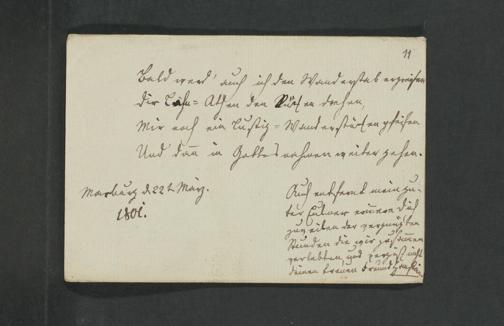 11
Bald werd' auch ich den Wanderstab ergreifen
Die Lahn=Athen den Rücken drehen,
Mir noch ein lustig=Wanderstückchen pfeifen
Und dann in Gottes nahmen weiter gehen.
Marburg d. 22t. März.
1801.
Auch entfernt mein gu-
ter erinnere Dich
zuweilen der vergnügten
Stunden die wir zusammen
verlebten, und vergiß nicht
deinen treuen Freund